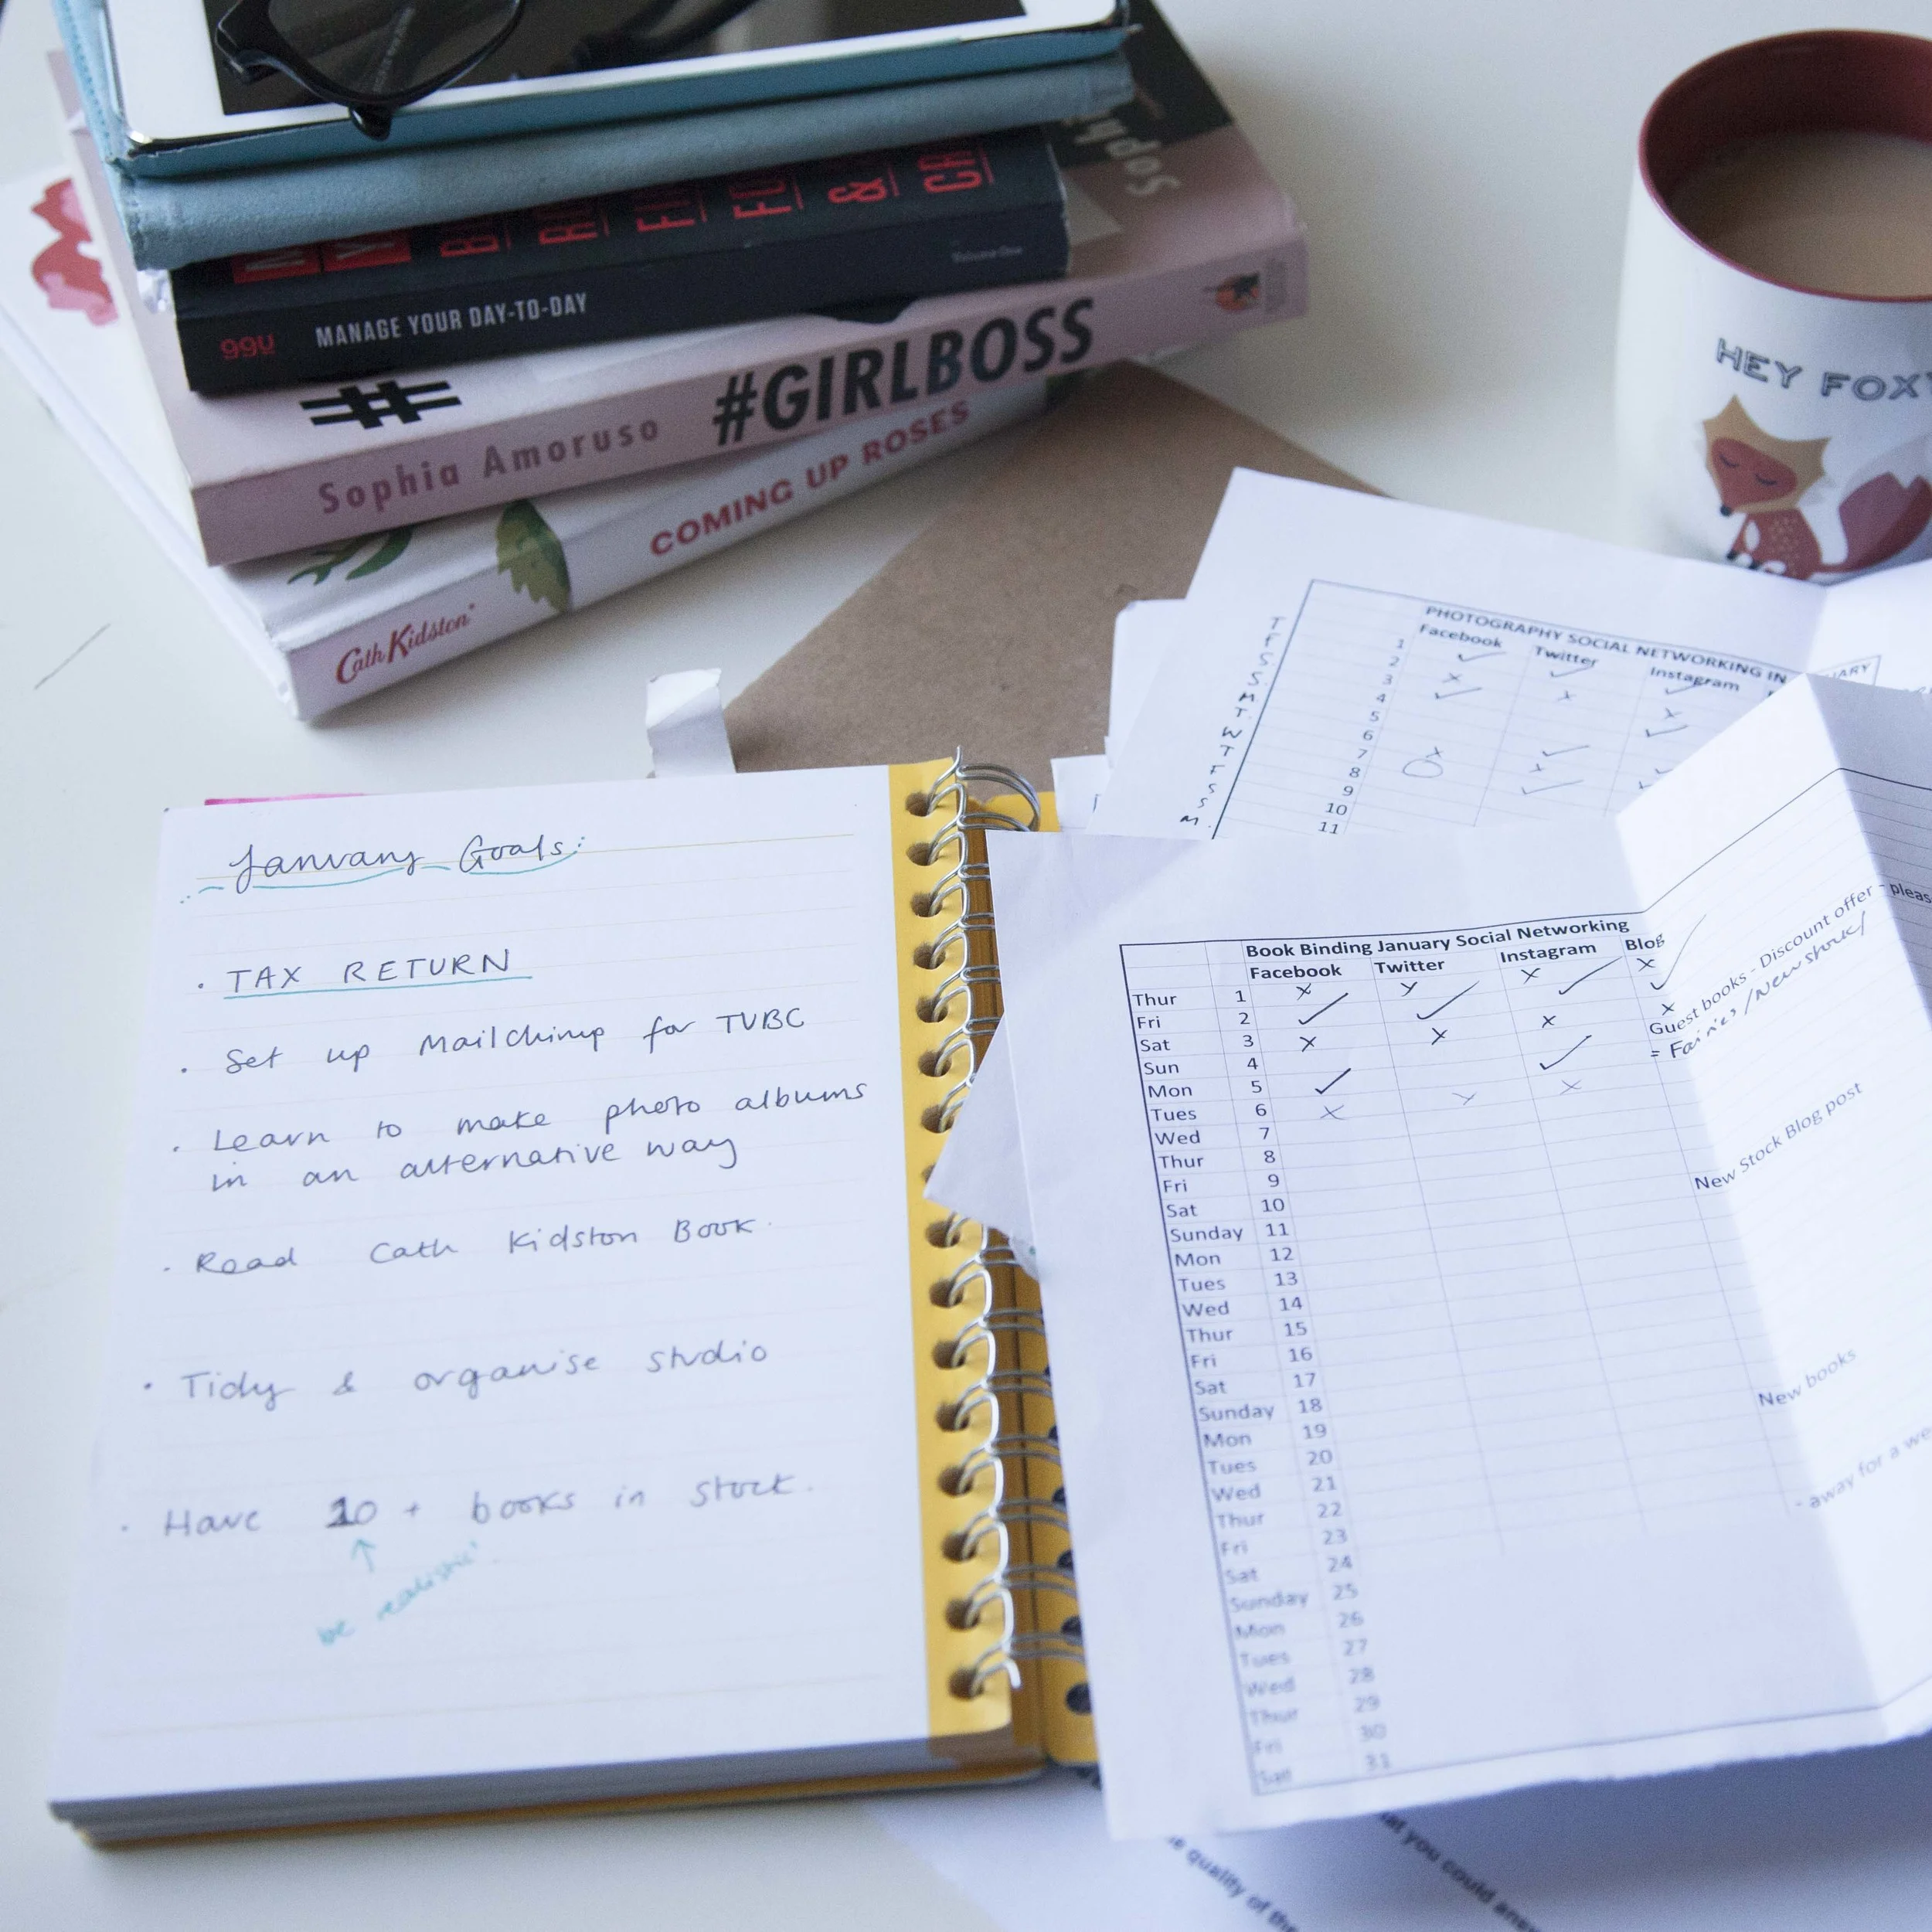 99U MANAGE YOUR DAY-TO-DAY
Volume One
#
Sophia Amoruso #GIRLBOSS
Cath Kidston COMING UP ROSES
HEY FOXY
PHOTOGRAPHY SOCIAL NETWORKING IN
Facebook Twitter Instagram
T 1
F 2
S 3
S 4
M 5
T 6
W 7
T 8
F 9
S 10
S 11
M
January Goals:
• TAX RETURN
• Set up Mailchimp for TVBC
• Learn to make photo albums
in an alternative way
• Read Cath Kidston Book.
• Tidy & organise studio
• Have 20 + books in stock.
be realistic!
Book Binding January Social Networking
Facebook Twitter Instagram Blog
Thur 1
Fri 2
Sat 3
Sun 4
Mon 5
Tues 6
Wed 7
Thur 8
Fri 9
Sat 10
Sunday 11
Mon 12
Tues 13
Wed 14
Thur 15
Fri 16
Sat 17
Sunday 18
Mon 19
Tues 20
Wed 21
Thur 22
Fri 23
Sat 24
Sunday 25
Mon 26
Tues 27
Wed 28
Thur 29
Fri 30
Sat 31
Guest books - Discount offer -
= Fairies/New stock/
New Stock Blog post
New books
- away for a
quality of the
you could